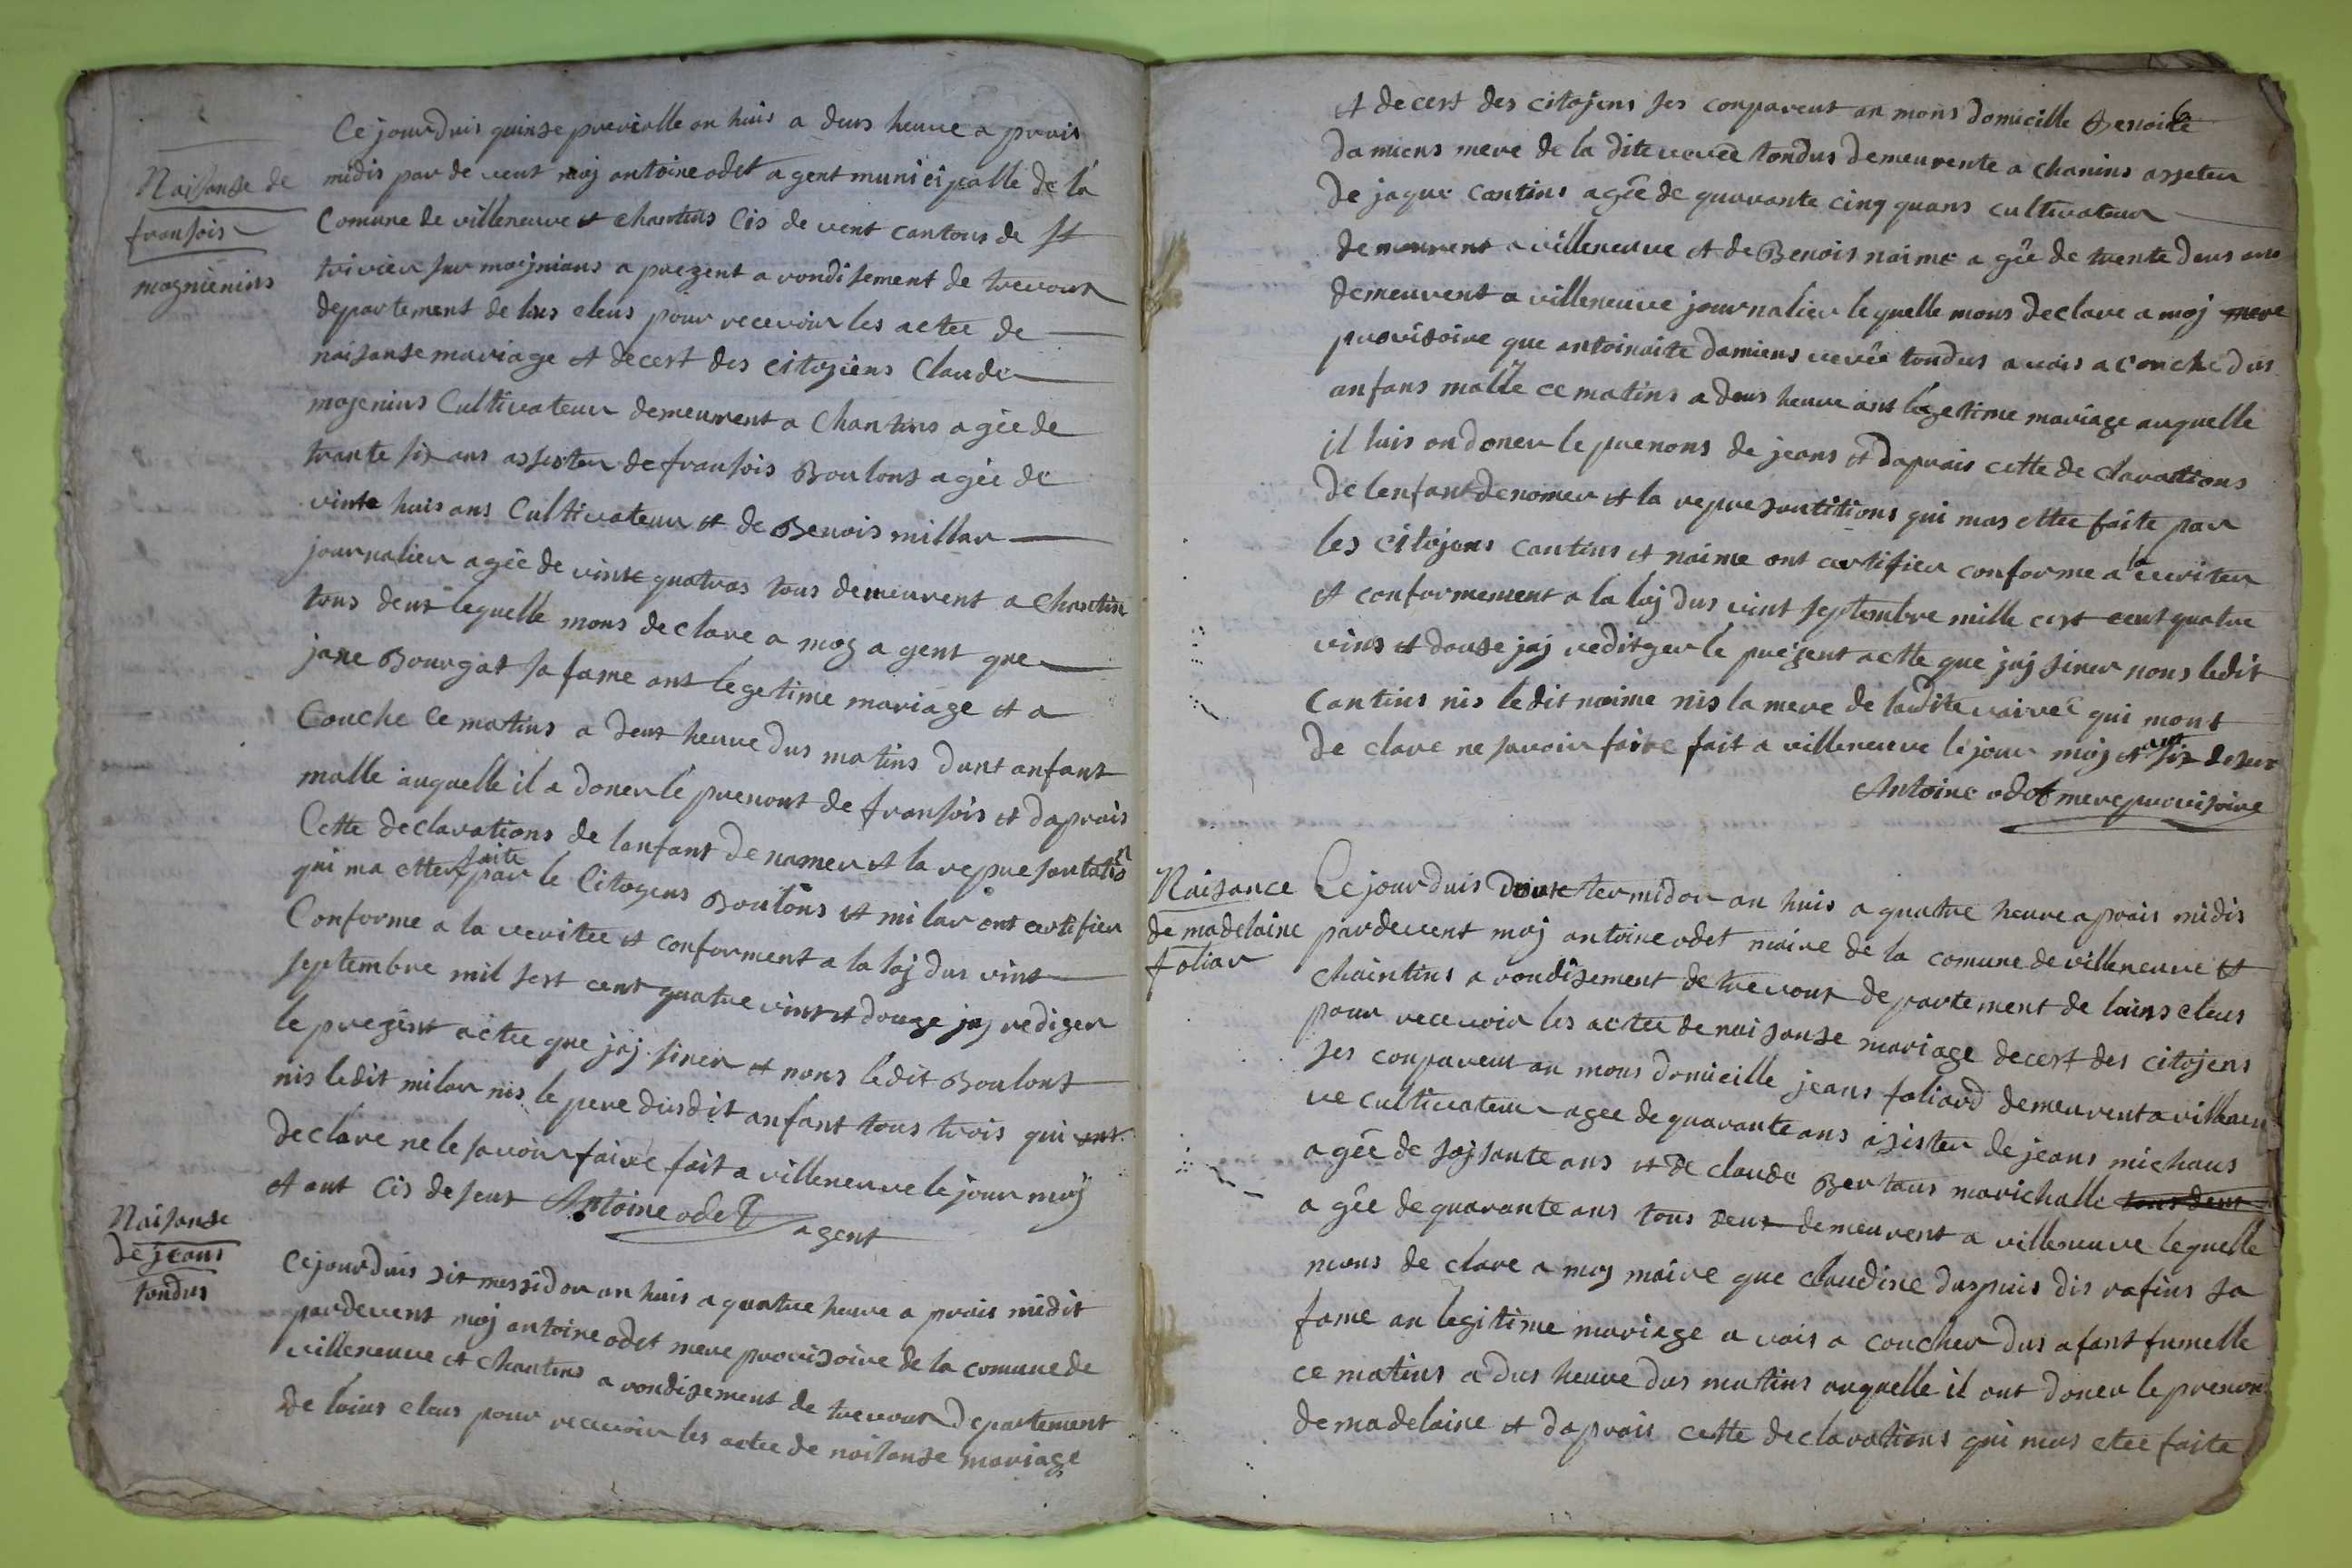 Naisanse de
fransois
magnienins
Ce jourduis quinse prerialle an huis a deus heure a prais
midis par de vent moj antoine odet agent municipalle de la
Comune de villeneuve et chantins Cis de vent cantons de St
trivier sur moignians a prezent a rondisement de trevoux
departement de lins eleus pour recevoir les actee de
naisanse mariage et decest des citogiens Claude
majenins Cultivateur demeurent a Chantins agée de
trante six ans assister de fransois Boulons agée de
vinte huis ans Cultivateur et de Benois millar
journalier agée de vinte quatras tous demeurent a Chantin
tous deus lequelle mons declare a moj agent que
jane Bourgat sa fame ant legetime mariage et a
Couche ce matins a deus heure dus matins dunt anfant
malle auquelle il a doner le prenont de fransois et daprais
Cette declarations de lanfant denomer et la represontation
qui ma etter faite par le Citogens Boulons et milar ont certifier
Conforme a la veritee et conforment a la loj dus vint
septembre mil sest cent quatre vint et douze jaj rediger
le prezent actee que jaj siner et nons ledit Boulont
nis ledit milar nis le pere dusdit anfant tous trois qui ont
declare ne le savoir faire fait a villeneuve le jour moj
et ant cis deseus Antoine odet
agent
Naisanse
de jeans
tondus
Cejourduis sis messidor an huis a quatre heure a prais midit
pardevent moj antoine odet mere provisoire de la comune de
villeneuve et chantins a rondisement de trevoux departement
de loins eleus pour recevoir les actee de naisanse mariage
6
et decest des citojens ses conparent an mons domicille Benoite
damiens mere de la dite vevée tondus demeurente a chanins asseteur
de jaque cantins agée de quarante cinq quans cultivateur
demeurent a villeneuve et de Benois naime a gée de trente deus ans
demeurent a villeneuve journalier lequelle mons declare a moj mere
provisoire que antoinaite damiens vevée tondus avois a couche dus
anfans malle ce matins a deus heure ant legetime mariage auquelle
il luis on doner le prenons de jeans et daprais cette declarattions
de lenfant denomer et la represontitions qui mas ettee faite par
les citojens cantins et naime ont certifier conforme a la veriter
et conformement a la loj dus vint septembre mille cest cent quatre
vins et douse jaj reditger le prezent actte que jaj siner nons ledit
Cantins nis ledit naime nis la mere de ladite vaivée qui mont
declare ne savoir faire fait a villeneuve le jour moj et ant sis deseus
Antoine odet mere provisoire
Naisance
de madelaine
foliar
Ce jourduis douse termidor an huis a quatre heure a prais midis
pardevent moj antoine odet maire de la comune de villeneuve et
chaintins a rondisement de trevoux departement de loins eleus
pour recevoir les actee de naisanse mariage decest des citojens
ses conparent an mons domicille jeans foliard demeurent a villeneu
ve cultivateur agee de quarante ans asister de jeans michaus
agée de sojsante ans et de claude Bertaus marichalle tous deus
a gée de quarante ans tous deus demeurent a villeneuve lequelle
mons declare a moj maire que claudine duspuis dis rafins sa
fame an legitime mariage avais a coucher dus afant fumelle
ce matins a dus heure dus matins auquelle il ont doner le prenon
de madelaine et daprais cette declarations qui mas etee faite